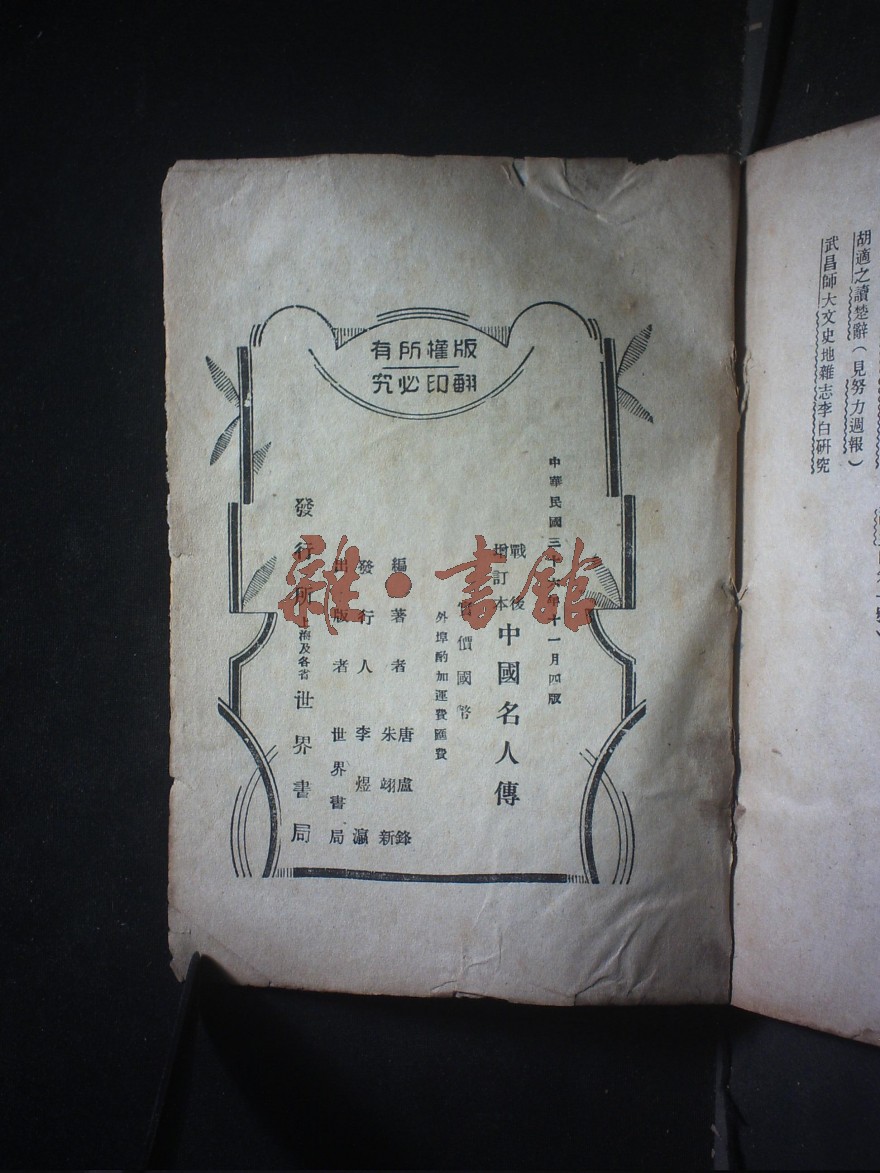 胡適之讀楚辭（見努力週報）
武昌師大文史地雜志李白研究
版權所有
翻印必究
中華民國三十六年十一月四版
戰後
增訂本
中國名人傳
實價國幣
外埠酌加運費匯費
編著者
唐盧鋒
朱翊新
發行人 李煜瀛
出版者 世界書局
發行所 上海及各省 世界書局
雜·書館